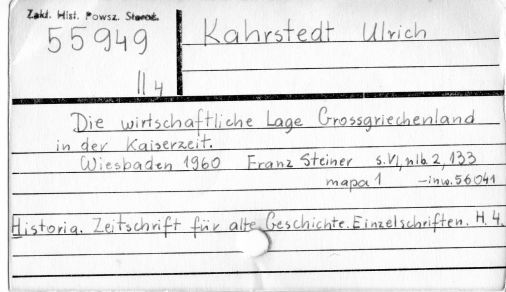 Zakł. Hist. Powsz. Staroż.
55949
II 4
Kahrstedt Ulrich
Die wirtschaftliche Lage Grossgriechenland
in der Kaiserzeit.
Wiesbaden 1960 Franz Steiner s. VI, nlb. 2, 133
mapa 1 -inw. 56041
Historia. Zeitschrift für alte Geschichte. Einzelschriften. H. 4.